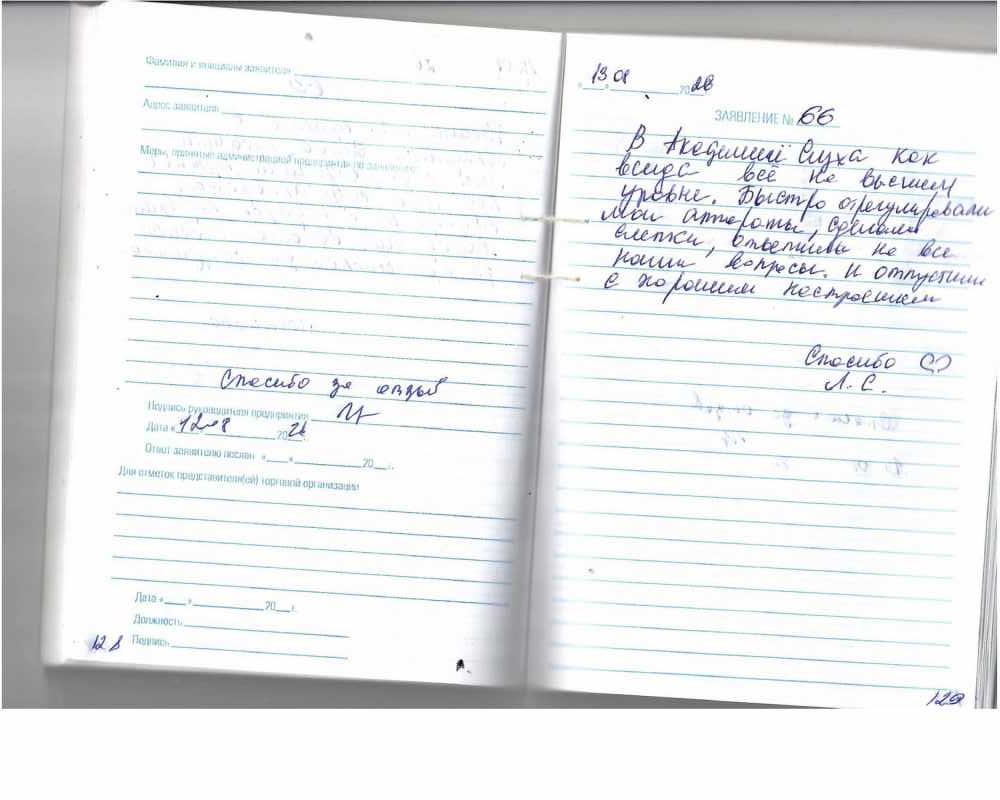 Фамилия и инициалы заявителя
Адрес заявителя
Меры, принятые администрацией предприятия по заявлению:
Спасибо за отзыв
Подпись руководителя предприятия
Дата «
20
Ответ заявителю послан «___»________20__г.
Для отметок представителя(ей) торговой организации
Дата «___»________20__г.
Должность
Подпись
128
13 08 20
ЗАЯВЛЕНИЕ № 66
В Академии Слуха как
всегда всё на высшем
уровне. Быстро отрегулировали
мои аппараты, сделали
слепки, ответили на все
наши вопросы. И отпустили
с хорошим настроением
Спасибо
Л. С.
129